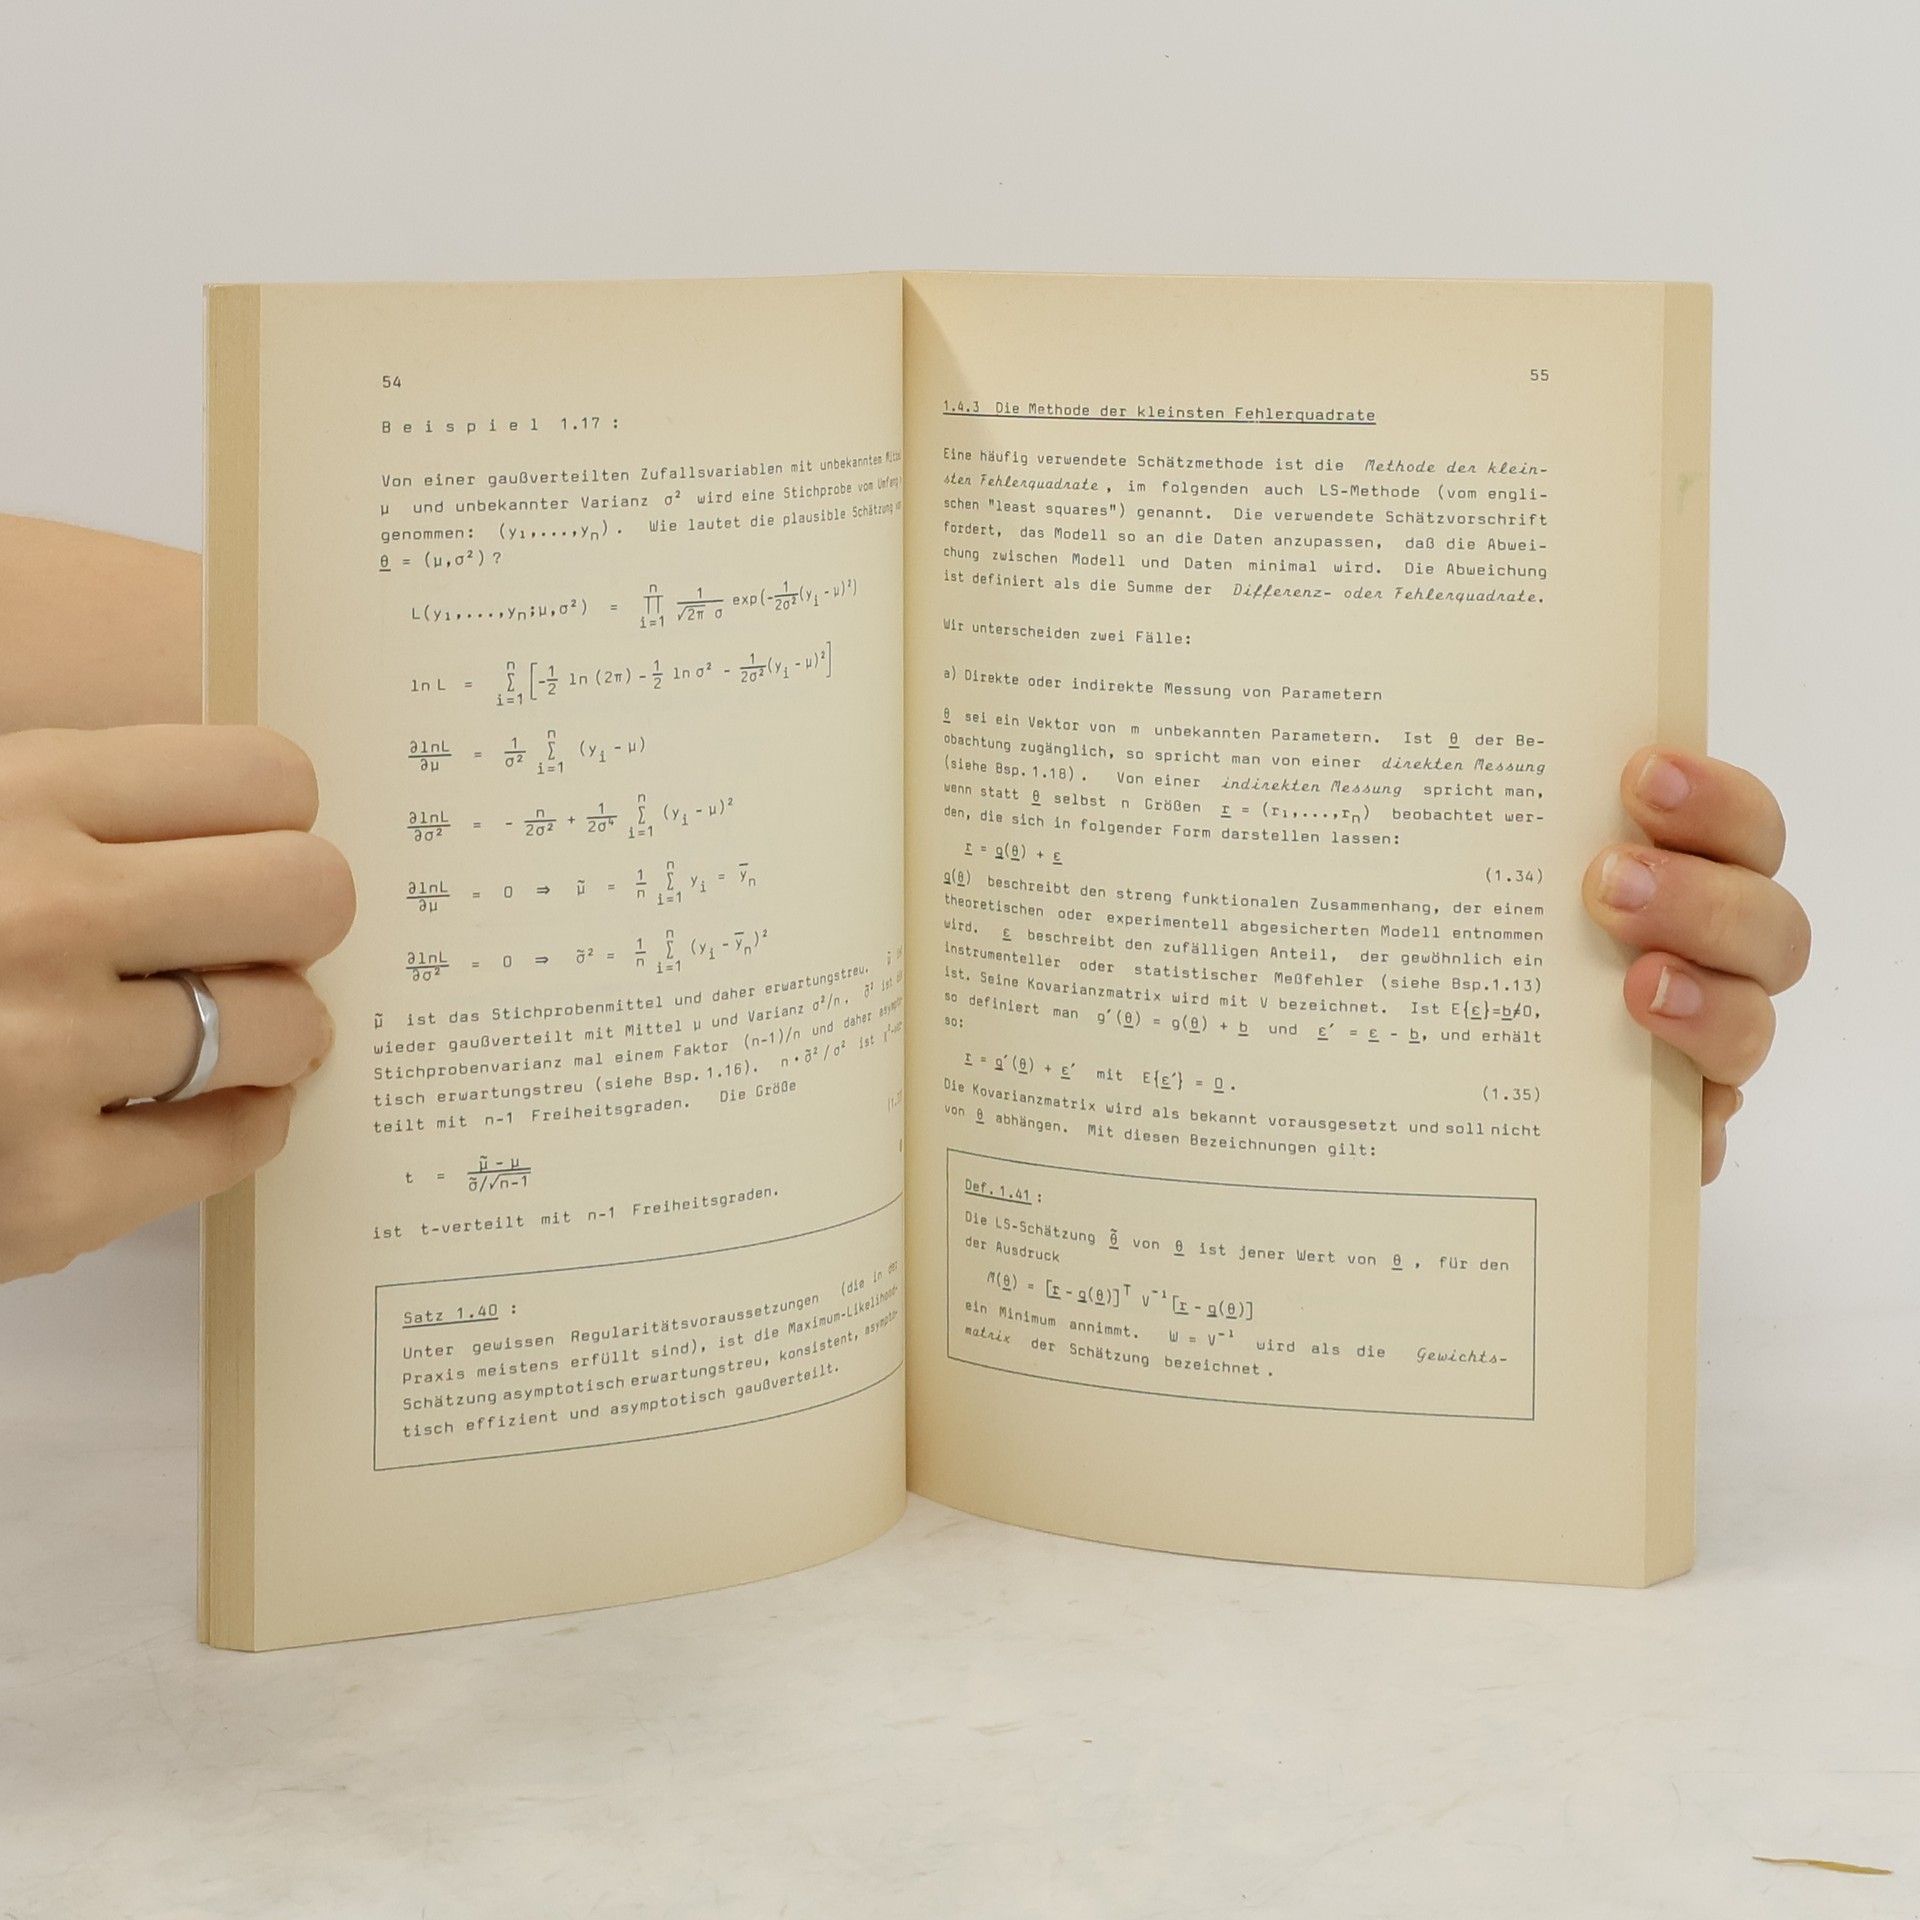 54
Beispiel 1.17 :
Von einer gaußverteilten Zufallsvariablen mit unbekanntem
μ und unbekannter Varianz σ² wird eine Stichprobe vom Umfang
genommen: (y₁,...,yₙ). Wie lautet die plausible Schätzung
θ = (μ,σ²) ?
L(y₁,...,yₙ;μ,σ²) = ∏ᵢ₌₁ⁿ 1/(√2π σ) exp(-1/2σ² (yᵢ - μ)²)
ln L = Σᵢ₌₁ⁿ [-1/2 ln (2π) - 1/2 ln σ² - 1/2σ² (yᵢ - μ)²]
∂lnL/∂μ = 1/σ² Σᵢ₌₁ⁿ (yᵢ - μ)
∂lnL/∂σ² = - n/2σ² + 1/2σ⁴ Σᵢ₌₁ⁿ (yᵢ - μ)²
∂lnL/∂μ = 0 ⇒ μ̃ = 1/n Σᵢ₌₁ⁿ yᵢ = ȳₙ
∂lnL/∂σ² = 0 ⇒ σ̃² = 1/n Σᵢ₌₁ⁿ (yᵢ - ȳₙ)²
μ̃ ist das Stichprobenmittel und daher erwartungstreu. μ̃
wieder gaußverteilt mit Mittel μ und Varianz σ²/n. σ̃² ist
Stichprobenvarianz mal einem Faktor (n-1)/n und daher
tisch erwartungstreu (siehe Bsp. 1.16). n·σ̃²/σ² ist
teilt mit n-1 Freiheitsgraden. Die Größe
t = (μ̃ - μ)/(σ̃/√n-1)
ist t-verteilt mit n-1 Freiheitsgraden.
Satz 1.40 :
Unter gewissen Regularitätsvoraussetzungen (die in der
Praxis meistens erfüllt sind), ist die Maximum-Likelihood-
Schätzung asymptotisch erwartungstreu, konsistent, asympto-
tisch effizient und asymptotisch gaußverteilt.
55
1.4.3 Die Methode der kleinsten Fehlerquadrate
Eine häufig verwendete Schätzmethode ist die Methode der klein-
sten Fehlerquadrate, im folgenden auch LS-Methode (vom engli-
schen "least squares") genannt. Die verwendete Schätzvorschrift
fordert, das Modell so an die Daten anzupassen, daß die Abwei-
chung zwischen Modell und Daten minimal wird. Die Abweichung
ist definiert als die Summe der Differenz- oder Fehlerquadrate.
Wir unterscheiden zwei Fälle:
a) Direkte oder indirekte Messung von Parametern
θ sei ein Vektor von m unbekannten Parametern. Ist θ der Be-
obachtung zugänglich, so spricht man von einer direkten Messung
(siehe Bsp. 1.18). Von einer indirekten Messung spricht man,
wenn statt θ selbst n Größen r = (r₁,...,rₙ) beobachtet wer-
den, die sich in folgender Form darstellen lassen:
r = g(θ) + ε (1.34)
g(θ) beschreibt den streng funktionalen Zusammenhang, der einem
theoretischen oder experimentell abgesicherten Modell entnommen
wird. ε beschreibt den zufälligen Anteil, der gewöhnlich ein
instrumenteller oder statistischer Meßfehler (siehe Bsp.1.13)
ist. Seine Kovarianzmatrix wird mit V bezeichnet. Ist E{ε}=b≠0,
so definiert man g′(θ) = g(θ) + b und ε′ = ε - b, und erhält
so:
r = g′(θ) + ε′ mit E{ε′} = 0. (1.35)
Die Kovarianzmatrix wird als bekannt vorausgesetzt und soll nicht
von θ abhängen. Mit diesen Bezeichnungen gilt:
Def. 1.41 :
Die LS-Schätzung θ̃ von θ ist jener Wert von θ, für den
der Ausdruck
M(θ) = [r - g(θ)]ᵀ V⁻¹ [r - g(θ)]
ein Minimum annimmt. W = V⁻¹ wird als die Gewichts-
matrix der Schätzung bezeichnet.